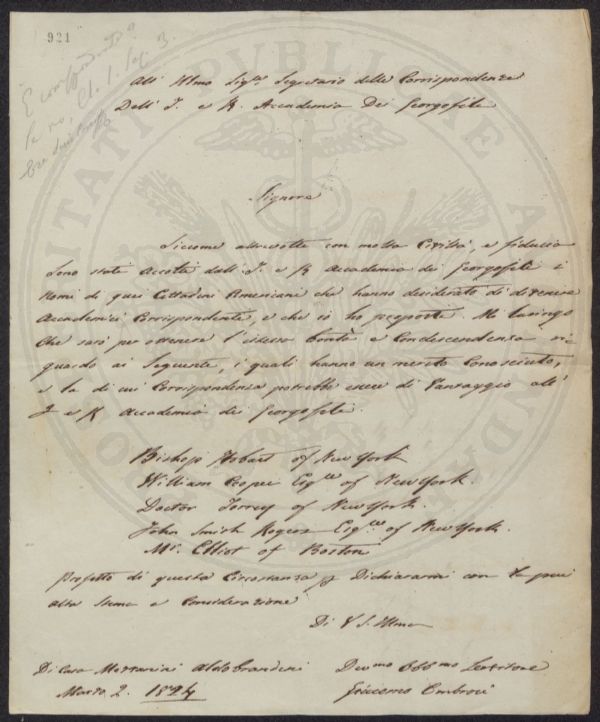 921
All' Illmo Sigre Segretario delle Corrispondenze
Dell' I. e R. Accademia Dei Georgofili
Signore
Siccome altrevolte con molta Civiltà e fiducia
sono stati accolti dall' I. e R Accademia dei Georgofili i
Nomi di quei Cittadini Americani che hanno desiderato di divenire
Accademici Corrispondenti, e che io ho proposti. Mi lusingo
che sarò per ottenere l'istessa bontà e Condescendenza ri
guardo ai Seguenti, i quali hanno un merito Conosciuto,
e la di cui Corrispondenza potrebbe essere di Vantaggio all'
I e R Accademia dei Georgofili.
Bishop Hobart of New York
William Cooper Esqre of New York.
Doctor Torrey of New York.
John Smith Rogers Esqre of New York.
Mr. Elliot of Boston
Profitto di questa Circostanza p Dichiararmi con la piu
alta Stima e Considerazione
Di V S. Illma
Di Casa Aldobrandini
Marzo 2. 1824
Devmo Obbmo Servitore
Giacomo Ombrosi
PUBLICAE